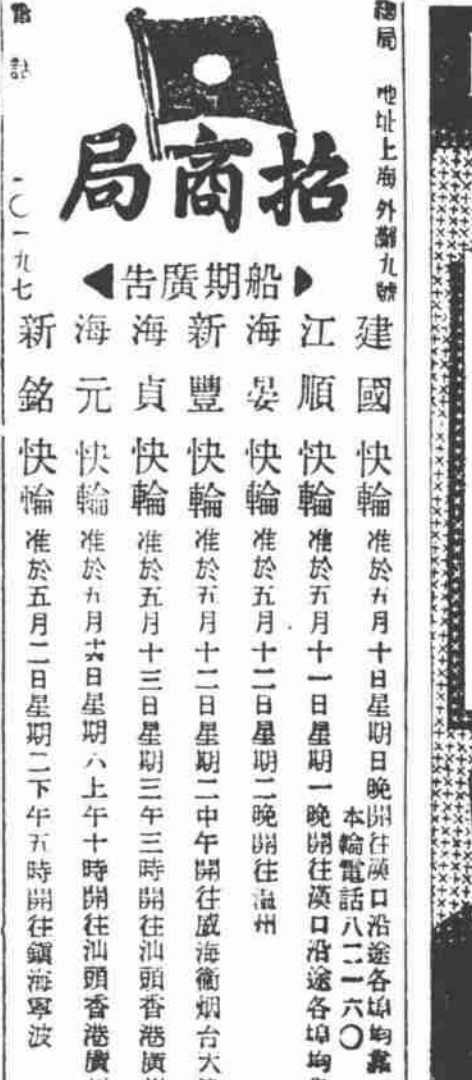 總局 地址上海外灘九號
招商局
電話 一〇一九七
船期廣告
建國 快輪 准於五月十日星期日晚開往漢口沿途各埠均靠
本輪電話八二一六〇
江順 快輪 准於五月十一日星期一晚開往漢口沿途各埠均
海晏 快輪 准於五月十二日星期二晚開往溫州
新豐 快輪 准於五月十二日星期二中午開往威海衛烟台大
海貞 快輪 准於五月十三日星期三午三時開往汕頭香港廣
海元 快輪 准於五月十六日星期六上午十時開往汕頭香港廣
新銘 快輪 准於五月二日星期二下午五時開往鎮海寧波